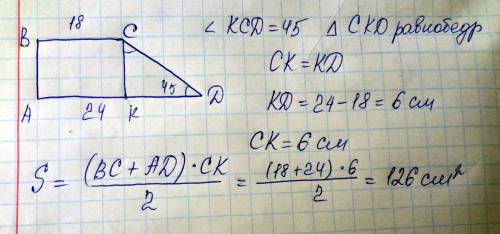 18
B C
45
A 24 K D
∠ KCD = 45 △ CKD равнобедр
CK = KD
KD = 24 - 18 = 6 см
CK = 6 см
S = (BC + AD) · CK / 2 = (18 + 24) · 6 / 2 = 126 см²